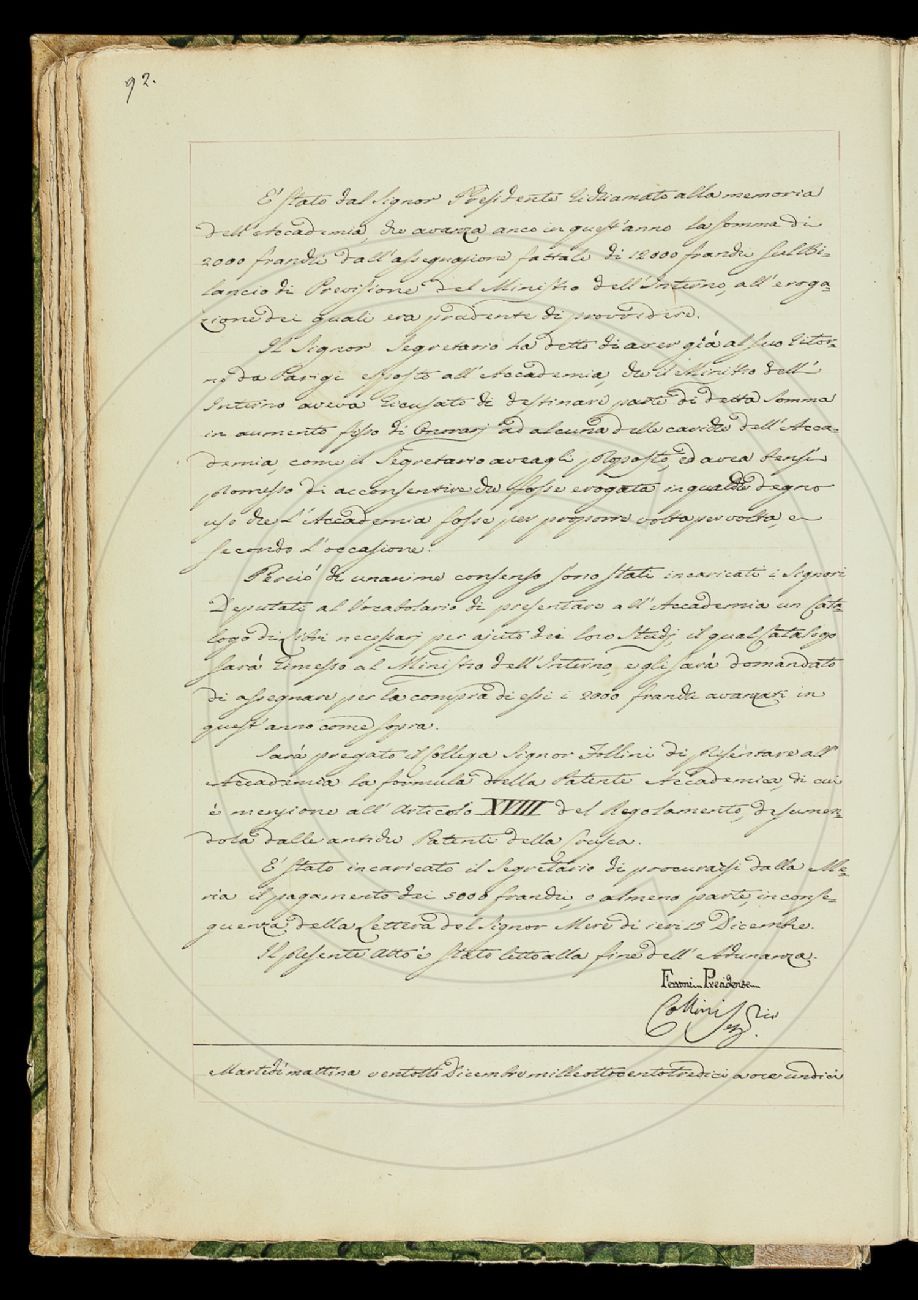 92.
E' stato dal Signor Presidente richiamato alla memoria
dell'Accademia, che avanza anco in quest'anno la somma di
2000 franchi dall'assegnazione fattale di 12000 franchi sul Bi-
lancio di Previsione del Ministro dell'Interno, all'eroga-
zione dei quali era prudente di provvedere.
Il Signor Segretario ha detto di aver già al suo ritor-
no da Parigi esposto all'Accademia, che il Ministro dell'
Interno aveva ricusato di destinare parte di detta somma
in aumento fisso di Onorarj ad alcuna delle cariche dell'Acca-
demia, come il Segretario aveagli proposto, ed avea bensì
promesso di acconsentire che fosse erogata in qualche degno
uso che l'Accademia fosse per proporre volta per volta, e
secondo l'occasione.
Perciò di unanime consenso sono stati incaricati i Signori
Deputati al Vocabolario di presentare all'Accademia un Cata-
logo di Libri necessarj per ajuto dei loro Studj, il qual Catalogo
sarà rimesso al Ministro dell'Interno, e gli sarà domandato
di assegnare per la compra di essi i 2000 franchi avanzati in
quest'anno come sopra.
Sarà pregato il Collega Signor Follini di presentare all'
Accademia la formula della Patente Accademica, di cui
è menzione all'Articolo XVIIII del Regolamento, desumen-
dola dalle antiche Patente della Crusca.
E' stato incaricato il Segretario di procurarsi dalla Me-
ria il pagamento dei 5000 franchi, o almeno parte, in conse-
guenza della Lettera del Signor Mere di ieri 13 Dicembre.
Il presente Atto è stato letto alla fine dell'Adunanza.
Ferroni Presidente
Collini Seg.rio
Martedì mattina ventotto Dicembre milleottocentotredici a ore undici